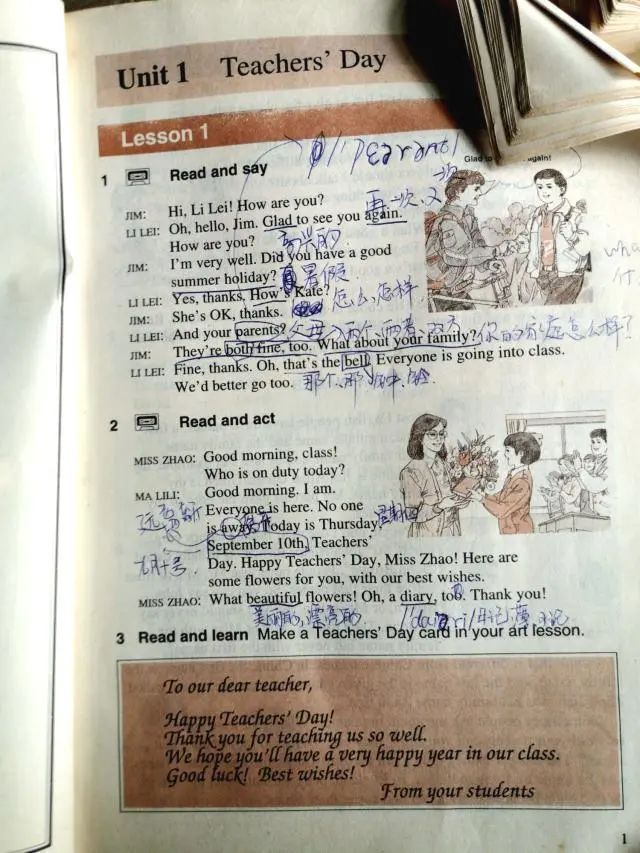 Unit 1 Teachers' Day
Lesson 1
1 Read and say
Glad to again!
JIM: Hi, Li Lei! How are you?
再一次.又一次
LI LEI: Oh, hello, Jim. Glad to see you again.
How are you? 高兴的
JIM: I'm very well. Did you have a good
summer holiday? 暑假
LI LEI: Yes, thanks. How's Kate? 怎么,怎样
JIM: She's OK, thanks.
LI LEI: And your parents? 父母 两个,两者,双方
JIM: They're both fine, too. What about your family? 你的家庭怎么样?
LI LEI: Fine, thanks. Oh, that's the bell. Everyone is going into class.
We'd better go too. 那个,那
2 Read and act
MISS ZHAO: Good morning, class!
Who is on duty today?
MA LILI: Good morning. I am.
Everyone is here. No one
is away. Today is Thursday, 星期四
September 10th, Teachers'
九月十号
Day. Happy Teachers' Day, Miss Zhao! Here are
some flowers for you, with our best wishes.
MISS ZHAO: What beautiful flowers! Oh, a diary, too. Thank you!
美丽的,漂亮的 日记
3 Read and learn Make a Teachers' Day card in your art lesson.
To our dear teacher,
Happy Teachers' Day!
Thank you for teaching us so well.
We hope you'll have a very happy year in our class.
Good luck! Best wishes!
From your students
1